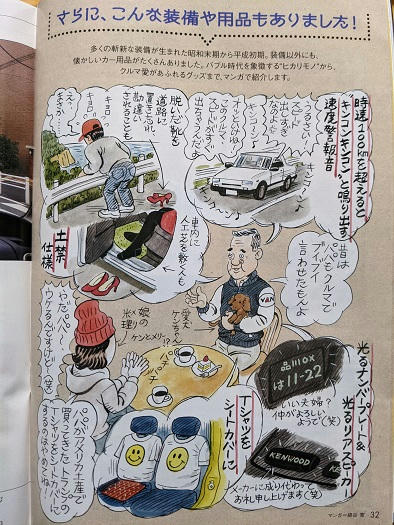 さらに、こんな装備や用品もありました!
多くの斬新な装備が生まれた昭和末期から平成初期。装備以外にも、
懐かしいカー用品がたくさんありました。バブル時代を象徴する“ヒカリモノ”から、
クルマ愛があふれるグッズまで、マンガで紹介します。
時速100kmを超えると
“キンコンキンコン”と鳴り出す
速度警報音
うるさい!
スピード
出しすぎ
なのよ
キンコン
キンコン
おっといけね!
このクルマ
スピードがすぐ
出ちゃうんだよ
脱いだ靴を
道路に
置き忘れ
勘違い
されることも
キョロ
キョロ
土禁
仕様
車内に
人工芝を敷く人も
昔は
パパも
クルマで
ブイブイ
言わせたもんよ
VAN
愛犬
ケンちゃん
娘の
米理
ケンとメリー!?
やだパパ〜
ウケるんですけど〜(笑)
光るナンバープレート&
光るリアスピーカー
品川OX
は11-22
いい夫婦?
仲がよろしい
ようで(笑)
KENWOOD
メーカーに成り代わって
お礼申し上げます(笑)
Tシャツを
シートカバーに
パパがアメリカ土産で
買ってきたトラシの
Tシャツをシートカバーに
するのはやめてね!
32